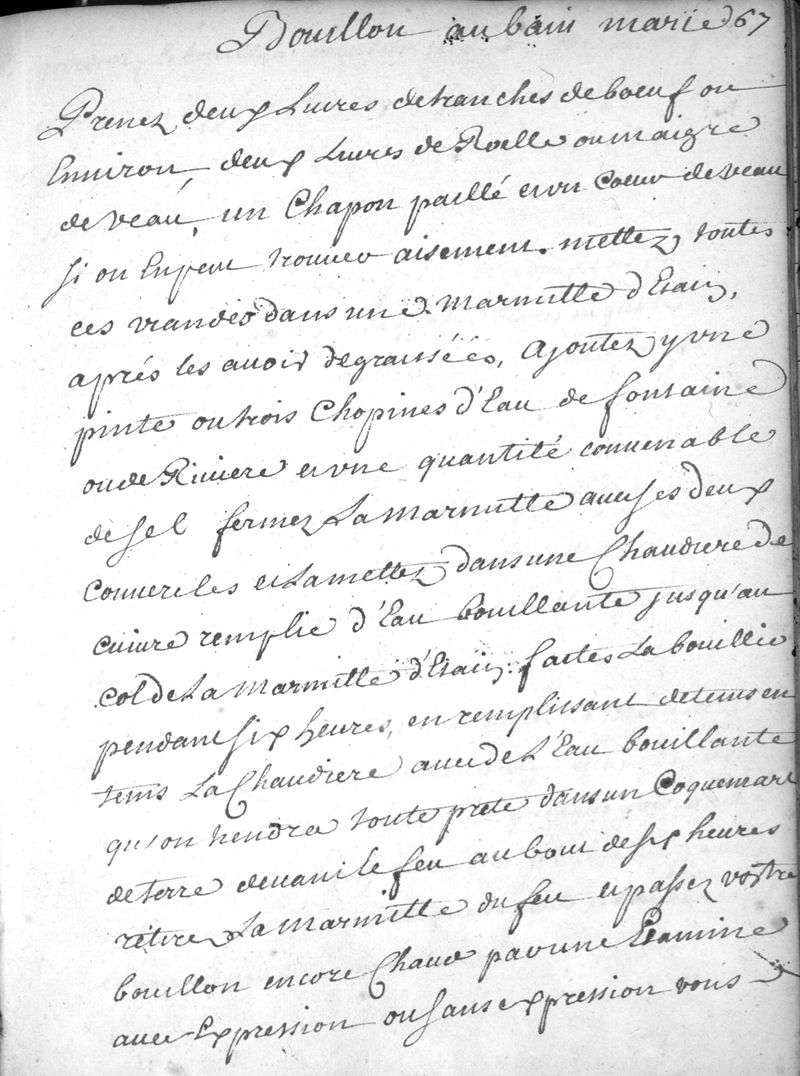 Bouillon au bain marie 67
Prenez deux Livres de tranches de boeuf ou
Environ deux Livres de Roelle ou maigre
de veau, un Chapon paillé et un Coeur de veau
si on En peut trouver aisement. mettez toutes
ces viandes dans une Marmitte d'Etain,
aprés les avoir degraissées, Ajoutez y une
pinte ou trois Chopines d'Eau de fontaine
ou de Riviere et vne quantité convenable
de sel fermez La Marmitte avec ses deux
couvercles et La mettez dans une Chaudiere de
cuivre remplie d'Eau bouillante jusqu'au
col de La Marmitte d'Etain. faites La bouillir
pendant six heures, en remplissant de tems en
tems La Chaudiere avec de L'Eau bouillante
qu'on tiendra toute prete dans un Coquemart
de terre devant le feu au bout de six heures
retirez La Marmitte du feu et passez vostre
bouillon encore Chaud par une Etamine
avec Expression ou sans expression vous